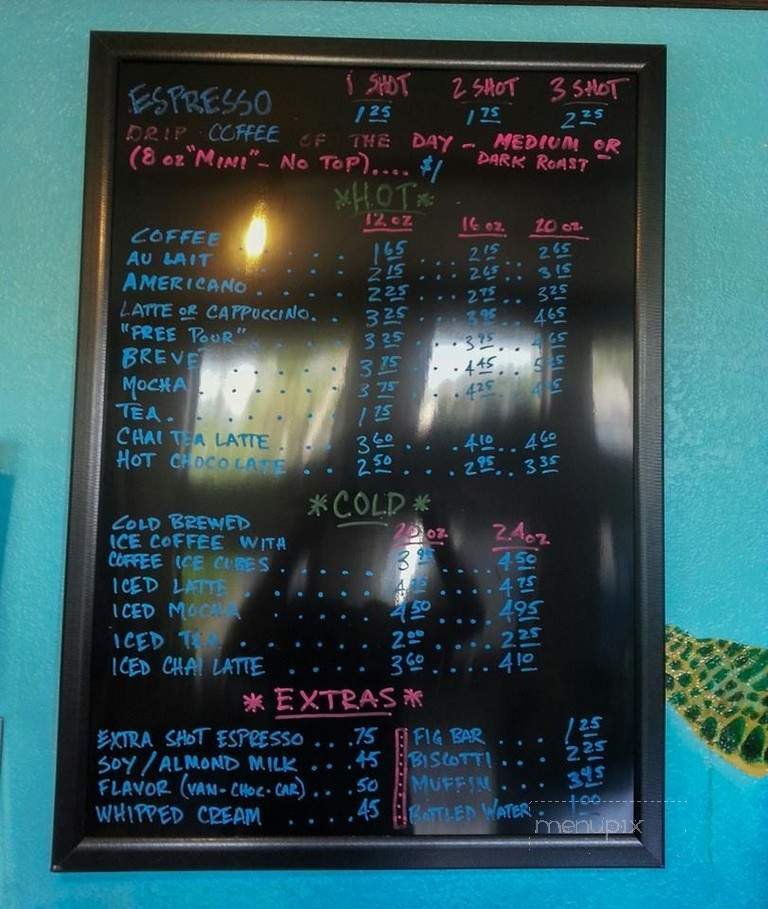 ESPRESSO 1 SHOT 2 SHOT 3 SHOT
1 25 1 75 2 25
DRIP COFFEE OF THE DAY - MEDIUM OR
(8 oz "MINI" - NO TOP).... $1 DARK ROAST
*HOT*
12 oz 16 oz 20 oz
COFFEE . . . . . 1 65 . . . 2 15 . . 2 65
AU LAIT . . . . . 2 15 . . . 2 65 . . 3 15
AMERICANO . . . . 2 25 . . . 2 75 . . 3 25
LATTE OR CAPPUCCINO . . 3 25 . . . 3 95 . . 4 65
"FREE POUR" . . . . 3 25 . . . 3 95 . . 4 65
BREVE . . . . . 3 75 . . . 4 45 . .
MOCHA . . . . . 3 75 . . . 4 25 . .
TEA . . . . . 1 75
CHAI TEA LATTE . . . 3 60 . . . 4 10 . . 4 60
HOT CHOCOLATE . . . 2 50 . . . 2 95 . . 3 35
*COLD*
COLD BREWED
ICE COFFEE WITH 20 oz 24 oz
COFFEE ICE CUBES . . . . . 3 95 . . . . 4 50
ICED LATTE . . . . . . . . . . 4 75
ICED MOCHA . . . . . 4 50 . . . . 4 95
ICED TEA . . . . . 2 00 . . . . 2 25
ICED CHAI LATTE . . . . 3 60 . . . . 4 10
*EXTRAS*
EXTRA SHOT ESPRESSO . . . 75 FIG BAR . . . . 1 25
SOY/ALMOND MILK . . . 45 BISCOTTI . . . . 2 25
FLAVOR (VAN-CHOC-CAR) . . . 50 MUFFIN . . . . 3 45
WHIPPED CREAM . . . . . 45 BOTTLED WATER . 1 00
menupix